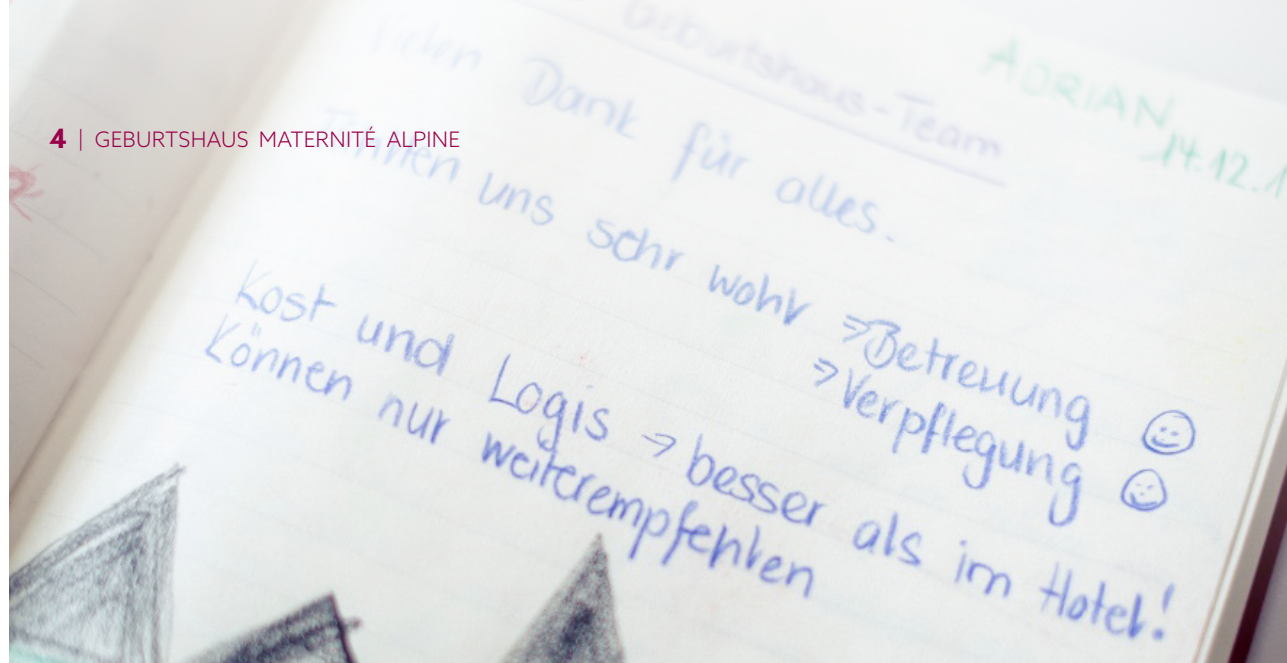 4 | GEBURTSHAUS MATERNITÉ ALPINE
Geburtshaus-Team
ADRIAN
14.12.1
Vielen Dank für alles.
uns sehr wohl ⇒ Betreuung ☺
⇒ Verpflegung ☺
Kost und Logis → besser als im Hotel!
Können nur weiterempfehlen